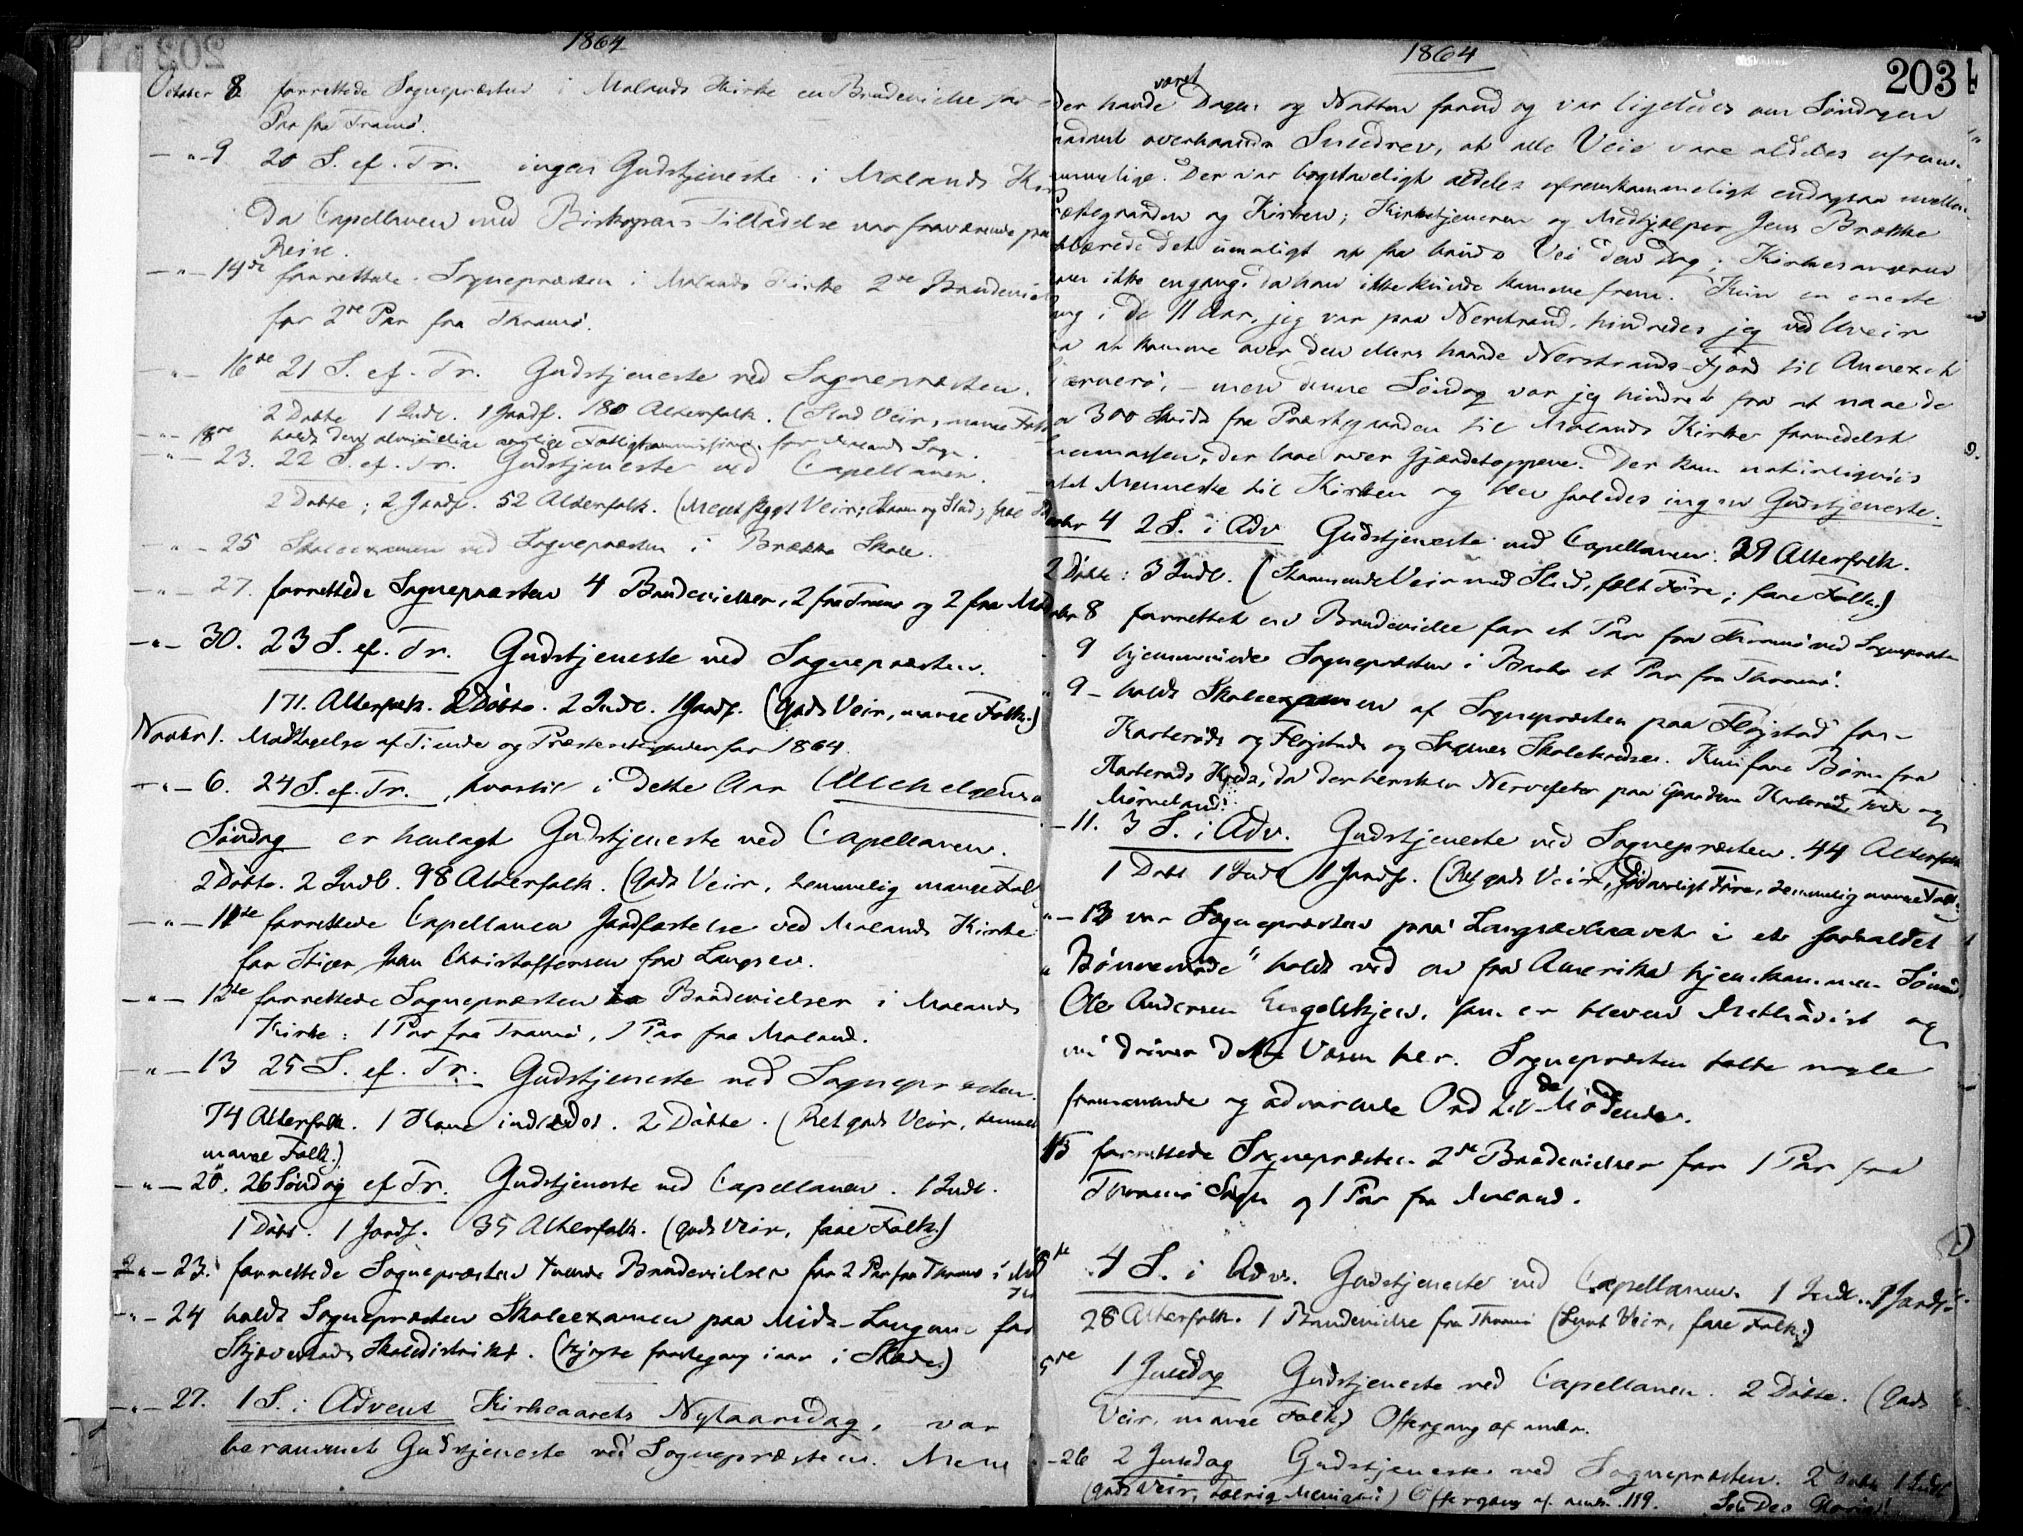 1864
October 8 forrettede Sognepræsten i Molands Kirke en Brudevielse for
Par fra Tromö.
— " — 9. 20 S. ef. Tr. ingen Gudstjeneste i Molands
da Capellanen med Biskopens Tilladelse var fraværende paa
Reise.
— " — 14de forrettede Sognepræsten i Molands Kirke 2de
for 2de Par fra Thromö.
— " — 16de 21 S. ef. Tr. Gudstjeneste ved Sognepræsten.
2 Döbte 1 Indl. 1 Jordf. 180 Alterfolk. (God Veir, mange
— " — 18de holdt den almindelige aarlige Fattigkommission for Molands Sogn.
— " — 23. 22 S. ef. Tr. Gudstjeneste ved Capellanen.
2 Döbte; 2 Jordf. 52 Alterfolk. (Meget stygt Veir; Storm og Slud; faae
— " — 25 Skoleexamen ved Sognepræsten i Brække Skole.
— " — 27. forrettede Sognepræsten 4 Brudevielser, 2 fra Tromö og 2 fra
— " — 30. 23 S. ef. Tr. Gudstjeneste ved Sognepræsten.
171 Alterfolk. 2 Döbte. 2 Indl. 1 Jordf. (godt Veir, mange Folk.)
Novbr 1. Modtagelse af Tiende og Præsterettigheder for 1864.
— " — 6. 24 S. ef. Tr., hvortil i dette Aar
Söndag er henlagt Gudstjeneste ved Capellanen.
2 Döbte. 2 Indl. 98 Alterfolk. (godt Veir, temmelig mange
— " — 11te forrettede Capellanen Jordfæstelse ved Molands Kirke
for Stiger John Christoffersen fra Langsev.
— " — 12te forrettede Sognepræsten to Brudevielser i Molands
Kirke: 1 Par fra Tromö, 1 Par fra Moland.
— " — 13 25 S. ef. Tr. Gudstjeneste ved Sognepræsten.
74 Alterfolk. 1 Kone indledet. 2 Döbte. (Ret godt Veir,
mange Folk.)
— " — 20. 26 Söndag ef Tr. Gudstjeneste ved Capellanen. 1 Indl.
1 Döbt. 1 Jordf. 35 Alterfolk. (godt Veir, faae Folk.)
— " — 23. forrettede Sognepræsten tvende Brudevielser for 2 Par fra Thromö i
— " — 24 holdt Sognepræsten Skoleexamen paa Midt-Langang for
Skjævestads Skoledistrikt. (Kjörte förstegang iaar i Slæde.)
— " — 27. 1 S. i Advent Kirkeaarets Nytaarsdag, var
berammet Gudstjeneste ved Sognepræsten. Men
1864
203
der havde været Dagen og Natten forud og var ligeledes om Söndagen
saadant overhaands Snedrev, at alle Veie vare aldeles
Der var bogstaveligt aldeles ufremkommeligt endogsaa mellem
Præstegaarden og Kirken; Kirketjeneren og Medhjælper Jens Brække
erklærede det umuligt at faa bands Vei den Dag; Kirkesangeren
ikke engang, da han ikke kunde komme frem. Kun en eneste
Gang i de 11 Aar, jeg var paa Nerstrand, hindredes jeg ved Uveir
fra at komme over den ellers haarde Nerstrands-Fjord til Annexet
— men denne Söndag var jeg hindret fra at naae de
300 Skridt fra Præstegaarden til Molands Kirke formedelst
Sneemassen, der laae over Gjærdetoppene. Der kom naturligviis
intet Menneske til Kirken og blev saaledes ingen Gudstjeneste.
4 2 S. i Adv Gudstjeneste ved Capellanen. 39 Alterfolk.
2 Döbte: 3 Indl. (Stormende Veir med Slud, fælt Före; faae Folk.)
8 forrettet en Brudevielse for et Par fra Thromö ved
9 hjemmeviede Sognepræsten i Barbo et Par fra Thromö.
9 — holdt Skoleexamen af Sognepræsten paa Flöjstad for
Karteröds og Flöjstads og Skolekredse. Kun faae Börn fra
Karteröds Kreds, da der hersker Nervefeber paa Gaardene Karteröd, og
— 11. 3 S. i Adv. Gudstjeneste ved Sognepræsten. 44 Alterfolk
1 Döbt 1 Indl 1 Jordf. (Ret godt Veir, Före, temmelig mange Folk.)
" — 13 var Sognepræsten paa Langsævhavet i et saakaldet
„Bönnemöde" holdt ved en fra Amerika hjemkommen
Ole Andersen Engelskjen, som er bleven Methodist og
nu driver dette Væsen her. Sognepræsten talte nogle
formanende og advarende Ord til de Mödende.
15 forrettede Sognepræsten 2de Brudevielser for 1 Par fra
Thromö Sogn og 1 Par fra Moland.
4 S. i Adv. Gudstjeneste ved Capellanen. 1 Indl. 1 Jordf.
28 Alterfolk. 1 Brudevielse fra Thromö (Veir, faae Folk.)
1 Juledag Gudstjeneste ved Capellanen. 2 Döbte. (godt
Veir, mange Folk) Offergang af
— 26 2 Juledag Gudstjeneste ved Sognepræsten. 2 Döbte 1 Indl
(godt Veir, talrig Menighed) Offergang af 119. Soli Deo Gloria!